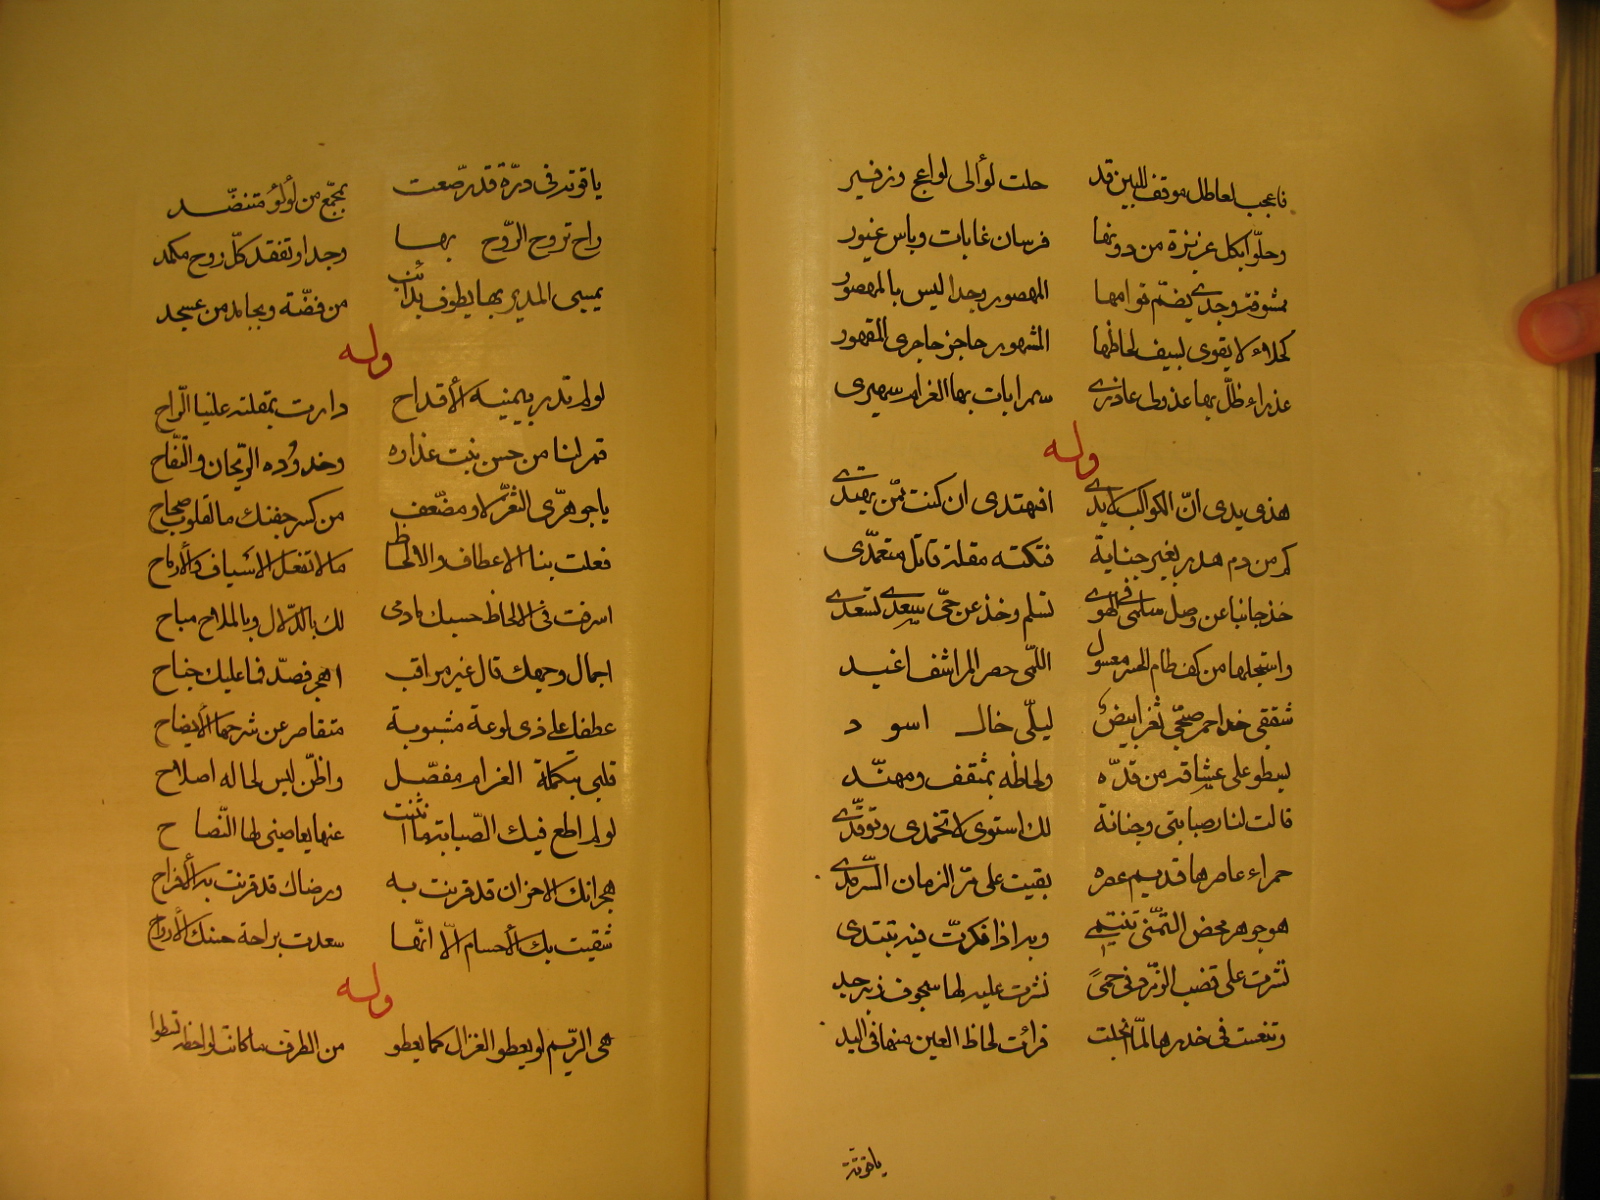 فاعجب لعاطل موقف للبين قد حلت لوألى لواعج وزفير
وحلّوا بكل عزيزة من دونها فرسان غابات وباس غيور
ممشوقة وجدى يضمّ قوامها المهصور وجدا ليس بالمهصور
كحلاء لا يقوى لسيف لحاظها المشهور حاجز حاجرى المقهور
عذراء ظلّ بها عذولى عاذرى سمرا بات بها الغرام سهيرى
وله
هذى يدى انّ الكواكب لا يدى افتهتدى ان كنت ممّن يهتدى
كم من دم هدر بغير جناية فتكته مقلة قاتل متعمدّى
خذ جانبا عن وصل سلمى فى الهوى تسلم وخذ عن حىّ سعدى تسعدى
واستجلها من كف ظام الخصر معسول اللّمى حصر المراشف اغيد
شفقى خد احمر صبحّى ثغر ابيض ليلّى خال اسود
يسطو على عشاقه من قدّه ولحاظه بمثقف ومهنّد
قالت لنار صبابتى وجنانه لك استوى لا تخمدى وتوقّدى
حمراء عاصرها قديم عصره بقيت على مرّ الزمان السّرمدى
هو جوهر محض التمّنى تنتمى وبه اذا فكرت فيه تبتدى
نشرت على قضب الزمّرد فى حمىً نشرت عليه لها سجوف زبرجد
وتنعست فى خدرها لمّا انجلت فرأت لحاظ العين منها فى اليد
ياقوتة
ياقوتة فى درّة قد رصّعت بمجمّع من لؤلؤ متنضّد
راح تروح الرّوح بها وجدا وتفقد كلّ روح مكمد
يمسى المدير بها يطوف بذائب من فضّة وبجامد من عسجد
وله
لو لم تدر بيمينه الأقداح دارت بمقلته علينا الرّاح
قمر لنا من حسن نبت عذاره وخدوده الريّحان والتّفّاح
ياجوهرّى الثغر لا ومضّعف من كسر جفنك ما لقلوب صحاح
فعلت بنا الاعطاف والالحاظ ما لا تفعل الاسياف والأرماح
اسرفت فى الالحاظ حسبك يا دمى لك بالدّلال وبالملاح مباح
اجمال وجهك قال غير مراقب اهجر فصدّ فما عليك جناح
عطفا على ذى لوعة مشبوبة متقاصر عن شرحها الأيضاح
قلبى بتكملة الغرام مفصّل واظنّ ليس لحاله اصلاح
لو لم اطع فيك الصّبابة ما انثنت عنها يعاصينى لها النّصاح
هجرانك الاحزان قد قرنت به ورضاك قد قرنت به الأفراح
شقيت بك الأجسام الّا انّها سعدت براحة حسنك الأرواح
وله
هى الرّيم لو يعطو الغزال كما يعطو من الطرف ما كانت لواحظه تسطوا